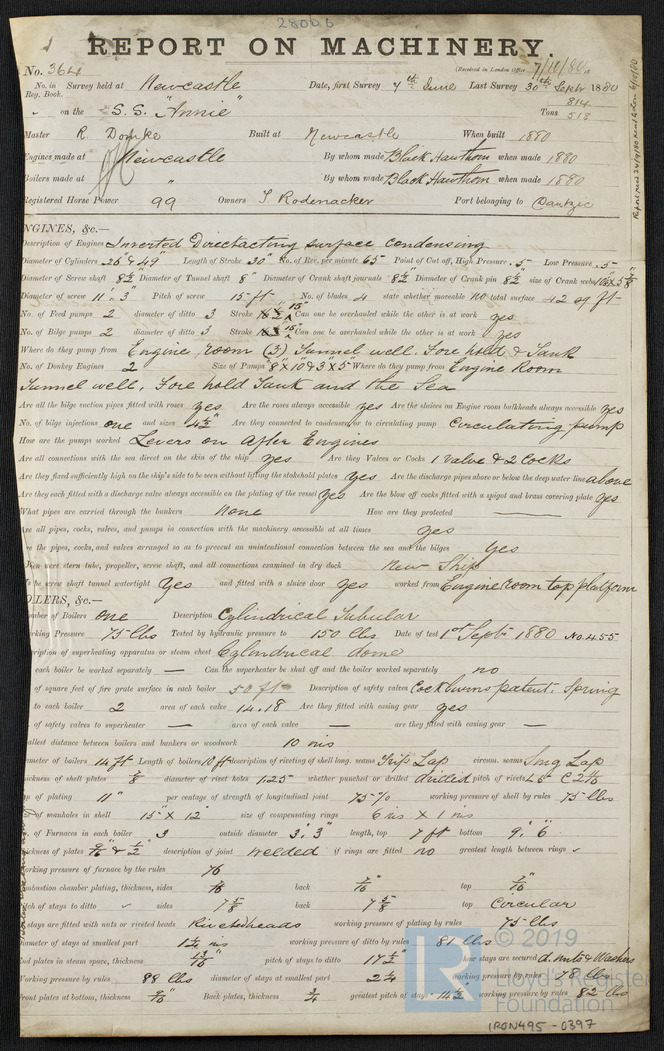 28006
REPORT ON MACHINERY.
No. 364 (Received in London Office 7/10/80
No. in Reg. Book. Survey held at Newcastle Date, first Survey 7th June Last Survey 30th Septr 1880
on the S.S. "Annie" Tons 814 513
Master R. Domke Built at Newcastle When built 1880
Engines made at Newcastle By whom made Black Hawthorn when made 1880
Boilers made at " By whom made Black Hawthorn when made 1880
Registered Horse Power 99 Owners T. Rodenacker Port belonging to Dantzic
NGINES, &c.—
Description of Engines Inverted Direct acting surface condensing
Diameter of Cylinders 26" & 49" Length of Stroke 30" No. of Rev. per minute 65 Point of Cut off, High Pressure .5 Low Pressure .5
Diameter of Screw shaft 8½" Diameter of Tunnel shaft 8" Diameter of Crank shaft journals 8½" Diameter of Crank pin 8½" size of Crank webs
Diameter of screw 11' 3" Pitch of screw 15 ft No. of blades 4 state whether moveable no total surface 42 sq ft
No. of Feed pumps 2 diameter of ditto 3 Stroke 15" Can one be overhauled while the other is at work yes
No. of Bilge pumps 2 diameter of ditto 3 Stroke 15" Can one be overhauled while the other is at work yes
Where do they pump from Engine room (3) Tunnel well. Fore hold & Tank
No. of Donkey Engines 2 Size of Pumps 8" X 10" & 3" X 5" Where do they pump from Engine Room
Tunnel well, Fore hold Tank and the Sea
Are all the bilge suction pipes fitted with roses yes Are the roses always accessible yes Are the sluices on Engine room bulkheads always accessible yes
No. of bilge injections one and sizes 4½" Are they connected to condenser, or to circulating pump Circulating pump
How are the pumps worked Levers on After Engines
Are all connections with the sea direct on the skin of the ship yes Are they Valves or Cocks 1 valve & 2 Cocks
Are they fixed sufficiently high on the ship's side to be seen without lifting the stokehold plates yes Are the discharge pipes above or below the deep water line above
Are they each fitted with a discharge valve always accessible on the plating of the vessel yes Are the blow off cocks fitted with a spigot and brass covering plate yes
What pipes are carried through the bunkers none How are they protected ———
re all pipes, cocks, valves, and pumps in connection with the machinery accessible at all times yes
e the pipes, cocks, and valves arranged so as to prevent an unintentional connection between the sea and the bilges yes
hen were stern tube, propeller, screw shaft, and all connections examined in dry dock New Ship
s the screw shaft tunnel watertight Yes and fitted with a sluice door yes worked from Engine room top platform
OILERS, &c.—
mber of Boilers one Description Cylindrical Tubular
rking Pressure 75 lbs Tested by hydraulic pressure to 150 lbs Date of test 1st Septr 1880 No. 455
cription of superheating apparatus or steam chest Cylindrical dome
each boiler be worked separately — Can the superheater be shut off and the boiler worked separately no
of square feet of fire grate surface in each boiler 50 ft Description of safety valves Cockburns patent. Spring
to each boiler 2 area of each valve 14.18 Are they fitted with easing gear yes
of safety valves to superheater — area of each valve — are they fitted with easing gear —
allest distance between boilers and bunkers or woodwork 10 ins
meter of boilers 14 ft Length of boilers 10 ft description of riveting of shell long. seams Trip Lap circum. seams Sing Lap
ickness of shell plates 7/8 diameter of rivet holes 1.25 whether punched or drilled drilled pitch of rivets
p of plating 11" per centage of strength of longitudinal joint 75% working pressure of shell by rules 75 lbs
of manholes in shell 15" X 12" size of compensating rings 6 ins X 1 ins
o. of Furnaces in each boiler 3 outside diameter 3' 3" length, top 7 ft bottom 9' 6"
ickness of plates 9/16 & 1/2" description of joint welded if rings are fitted no greatest length between rings
orking pressure of furnace by the rules 76
mbustion chamber plating, thickness, sides 7/16 back 7/16 top 7/16
itch of stays to ditto sides 7 5/8 back 7 5/8 top Circular
stays are fitted with nuts or riveted heads Riveted heads working pressure of plating by rules 75 lbs
iameter of stays at smallest part 1¼ ins working pressure of ditto by rules 81 lbs
nd plates in steam space, thickness 13/16" pitch of stays to ditto 17½" how stays are secured d. nuts & Washers
Working pressure by rules 88 lbs diameter of stays at smallest part 2¼ working pressure by rules 78 lbs
Front plates at bottom, thickness 9/16 Back plates, thickness ¾ greatest pitch of stays 14½" working pressure by rules 82 lbs
© 2019
LR
Lloyd's Register
Foundation
IRON495-0397